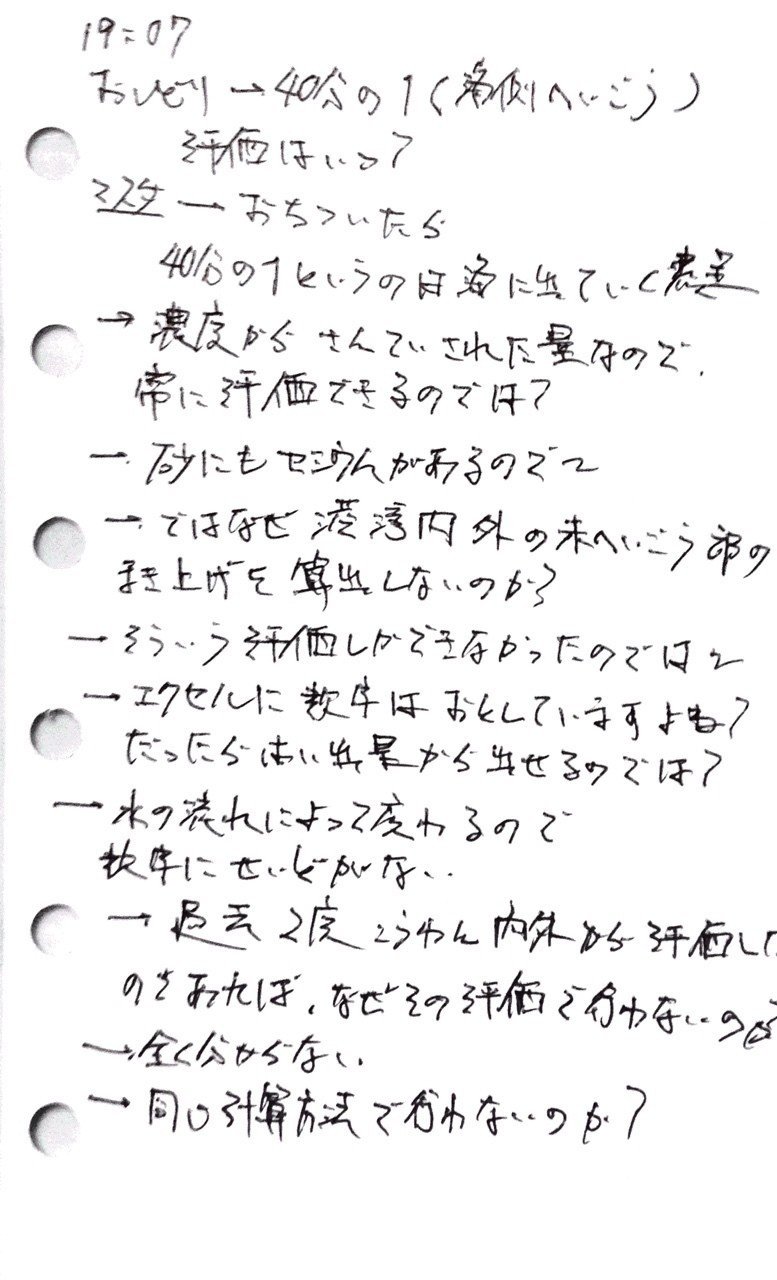 19:07
おしどり → 40分の1(海側へいこう)
評価はいつ?
ミスタ → おちついたら
40分の1というのは海に出ていく
→ 濃度から さんていされた量なので、
常に評価できるのでは?
→ 砂にもセシウムがあるので〜
→ ではなぜ 港湾内外の未へいこう部の
まき上げを 算出しないのか?
→ そういう評価しかできなかったのでは〜
→ エクセルに 数字は おとしていますよね?
だったら はい出量から 出せるのでは?
→ 水の流れによって変わるので
数字に せいどがない.
→ 過去2度 こうわん 内外から 評価した
のであれば、なぜその評価で行わないのか
→ 全く分からない.
→ 同じ計算方法で行わないのか?